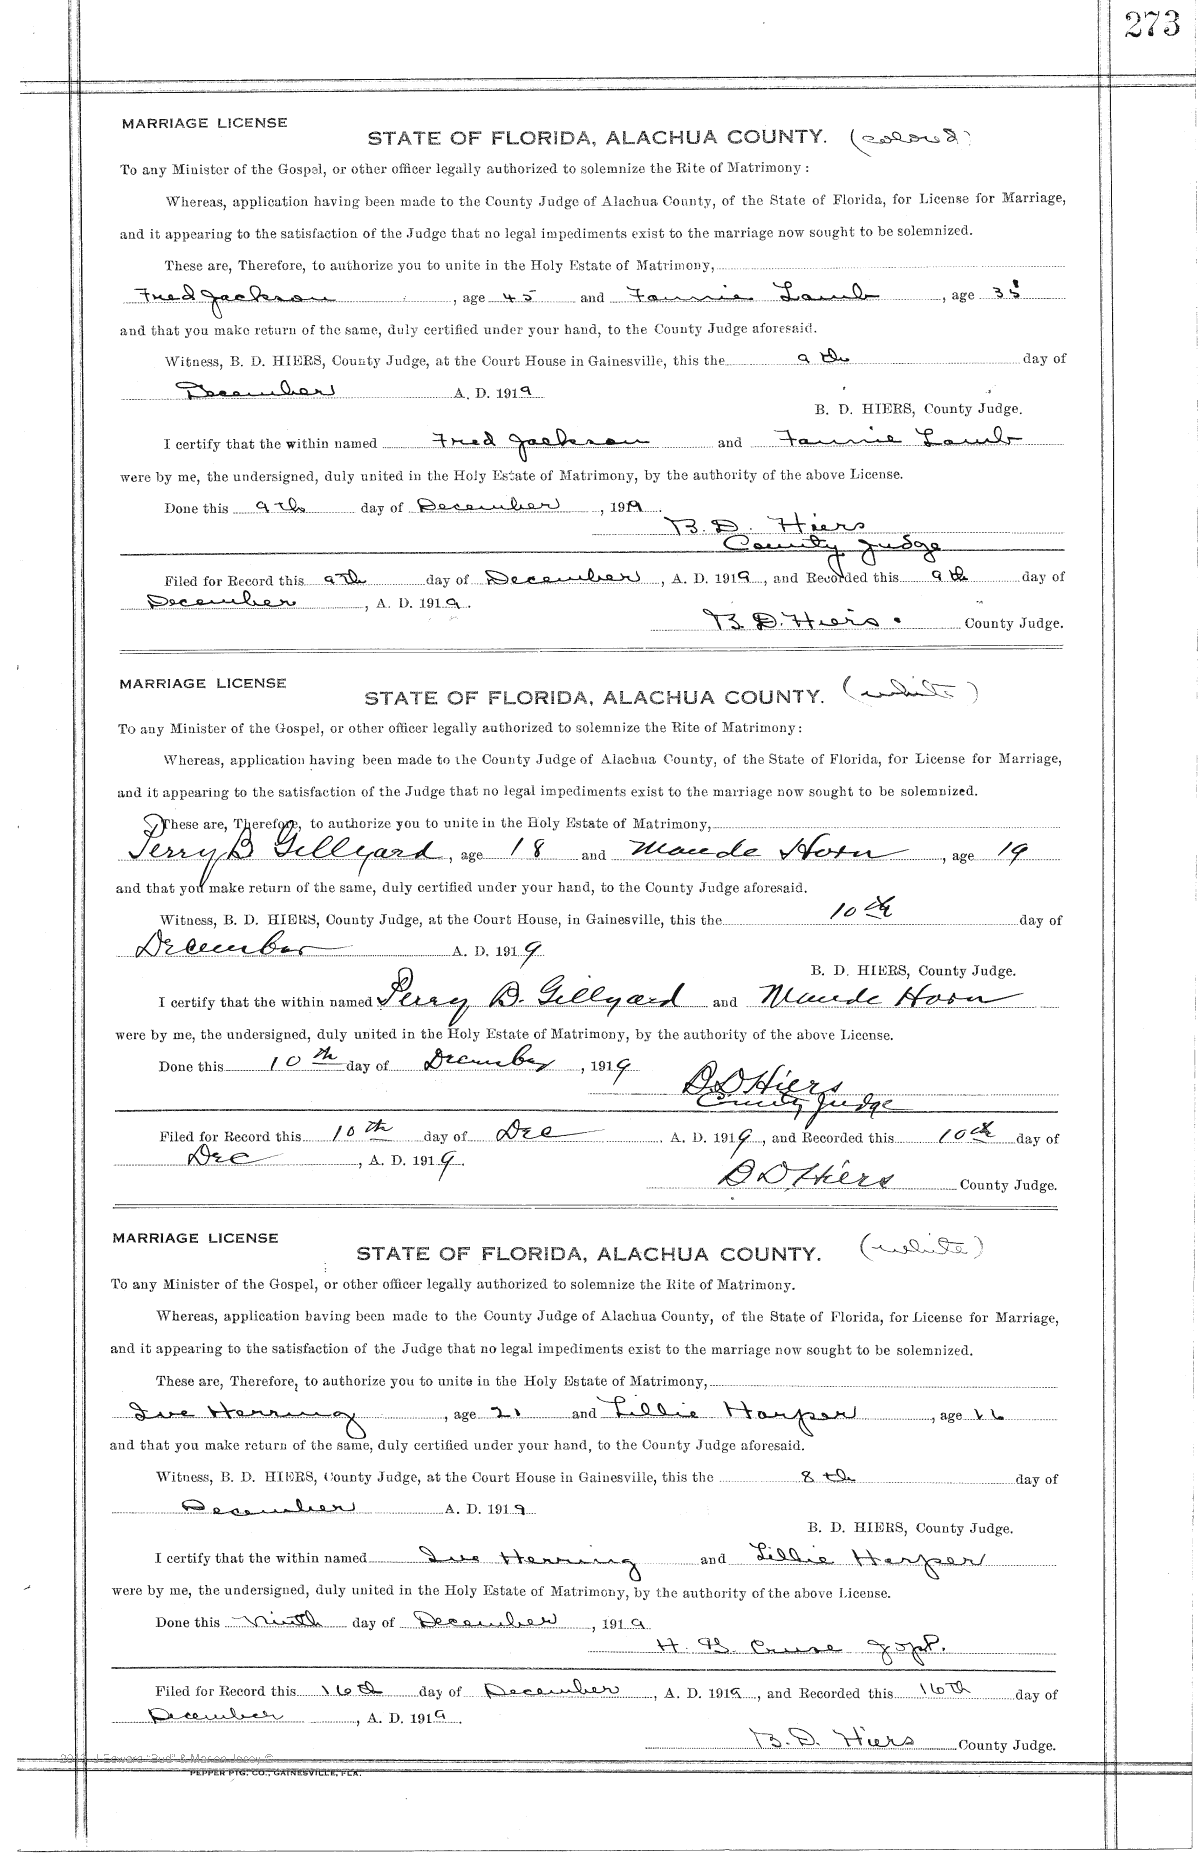 273
MARRIAGE LICENSE
STATE OF FLORIDA, ALACHUA COUNTY. (colored)
To any Minister of the Gospel, or other officer legally authorized to solemnize the Rite of Matrimony:
Whereas, application having been made to the County Judge of Alachua County, of the State of Florida, for License for Marriage,
and it appearing to the satisfaction of the Judge that no legal impediments exist to the marriage now sought to be solemnized.
These are, Therefore, to authorize you to unite in the Holy Estate of Matrimony,
Fred Jackson, age 45 and Fannie Lamb, age 35
and that you make return of the same, duly certified under your hand, to the County Judge aforesaid.
Witness, B. D. HIERS, County Judge, at the Court House in Gainesville, this the 9th day of
December A. D. 1919
B. D. HIERS, County Judge.
I certify that the within named Fred Jackson and Fannie Lamb
were by me, the undersigned, duly united in the Holy Estate of Matrimony, by the authority of the above License.
Done this 9th day of December, 1919.
B. D. Hiers
County Judge
Filed for Record this 9th day of December, A. D. 1919, and Recorded this 9th day of
December, A. D. 1919.
B. D. Hiers. County Judge.
MARRIAGE LICENSE
STATE OF FLORIDA, ALACHUA COUNTY. (white)
To any Minister of the Gospel, or other officer legally authorized to solemnize the Rite of Matrimony:
Whereas, application having been made to the County Judge of Alachua County, of the State of Florida, for License for Marriage,
and it appearing to the satisfaction of the Judge that no legal impediments exist to the marriage now sought to be solemnized.
These are, Therefore, to authorize you to unite in the Holy Estate of Matrimony,
Perry B Gillyard, age 18 and Maude Horn, age 19
and that you make return of the same, duly certified under your hand, to the County Judge aforesaid.
Witness, B. D. HIERS, County Judge, at the Court House, in Gainesville, this the 10th day of
December A. D. 1919
B. D. HIERS, County Judge.
I certify that the within named Perry B. Gillyard and Maude Horn
were by me, the undersigned, duly united in the Holy Estate of Matrimony, by the authority of the above License.
Done this 10th day of December, 1919
B D Hiers
County Judge
Filed for Record this 10th day of Dec A. D. 1919, and Recorded this 10th day of
Dec, A. D. 1919.
B D Hiers County Judge.
MARRIAGE LICENSE
STATE OF FLORIDA, ALACHUA COUNTY. (white)
To any Minister of the Gospel, or other officer legally authorized to solemnize the Rite of Matrimony.
Whereas, application having been made to the County Judge of Alachua County, of the State of Florida, for License for Marriage,
and it appearing to the satisfaction of the Judge that no legal impediments exist to the marriage now sought to be solemnized.
These are, Therefore, to authorize you to unite in the Holy Estate of Matrimony,
Ive Herring, age 21 and Lillie Harper, age 16
and that you make return of the same, duly certified under your hand, to the County Judge aforesaid.
Witness, B. D. HIERS, County Judge, at the Court House in Gainesville, this the 8th day of
December A. D. 1919
B. D. HIERS, County Judge.
I certify that the within named Ive Herring and Lillie Harper
were by me, the undersigned, duly united in the Holy Estate of Matrimony, by the authority of the above License.
Done this Ninth day of December, 1919
H. G. Cruse
Filed for Record this 16th day of December, A. D. 1919, and Recorded this 16th day of
December, A. D. 1919.
B. D. Hiers County Judge.
PEPPER PTG. CO., GAINESVILLE, FLA.